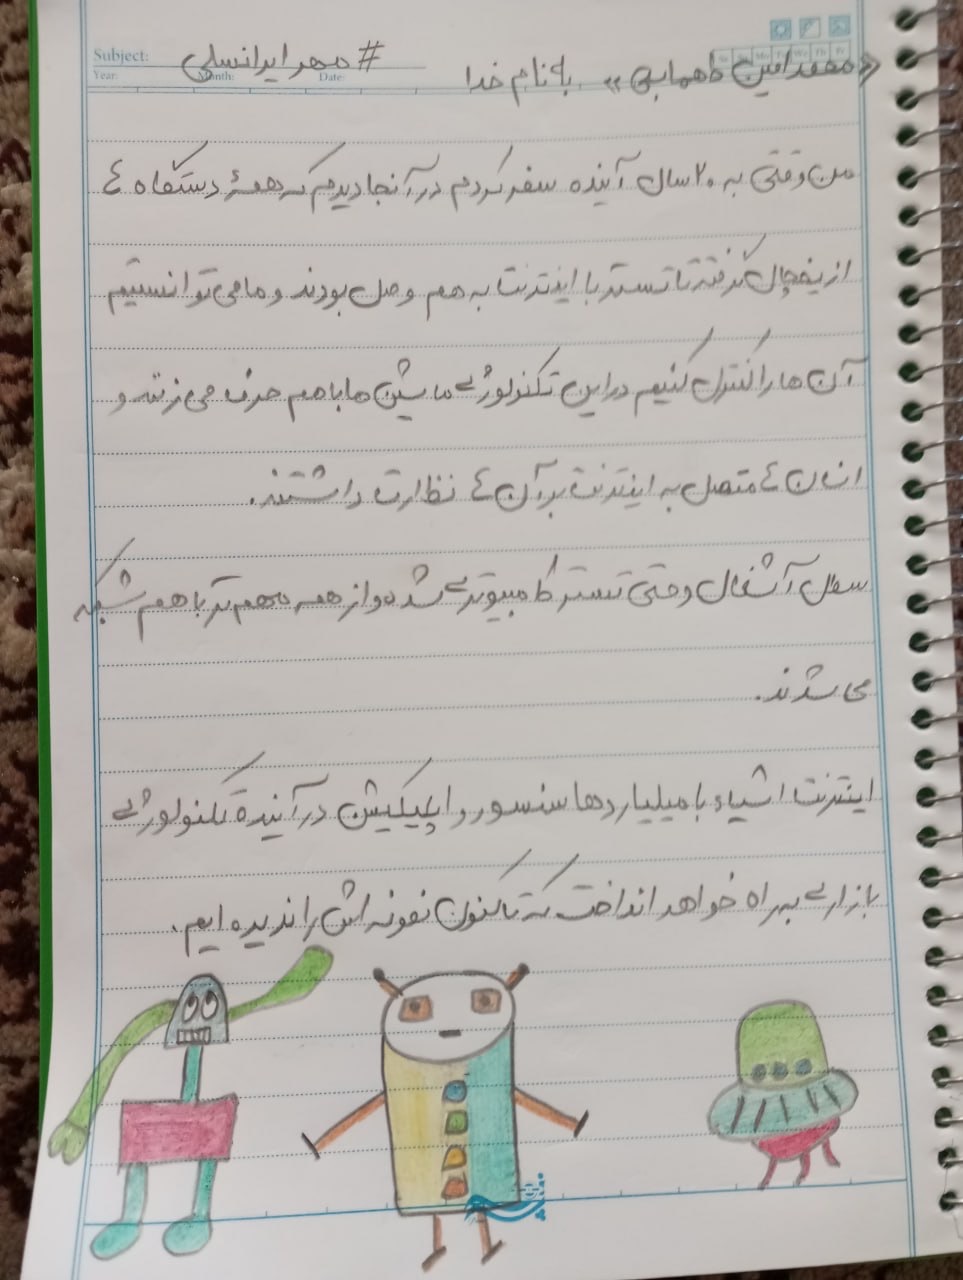 Subject:
Year: Month: Date:
# مهر ایرانسلی
به نام خدا
من وقتی به ۲۰ سال آینده سفر کردم در آنجا دیدم که همهٔ دستگاه ء
از یخچال گرفته تا تستر با اینترنت به هم وصل بودند و ما می توانستیم
آن ها را کنترل کنیم در این تکنولوژی ماشین ها با هم حرف می زنند و
انسان ء متصل به اینترنت بر آن ء نظارت داشتند.
سطل آشغال و حتی تستر کامپیوتری شده و از همه مهم تر با هم شبکه
می شدند.
اینترنت اشیاء با میلیاردها سنسور و اپلیکیشن در آیندهٔ تکنولوژی
بازاری به راه خواهد انداخت که تاکنون نمونه اش را ندیده ایم.